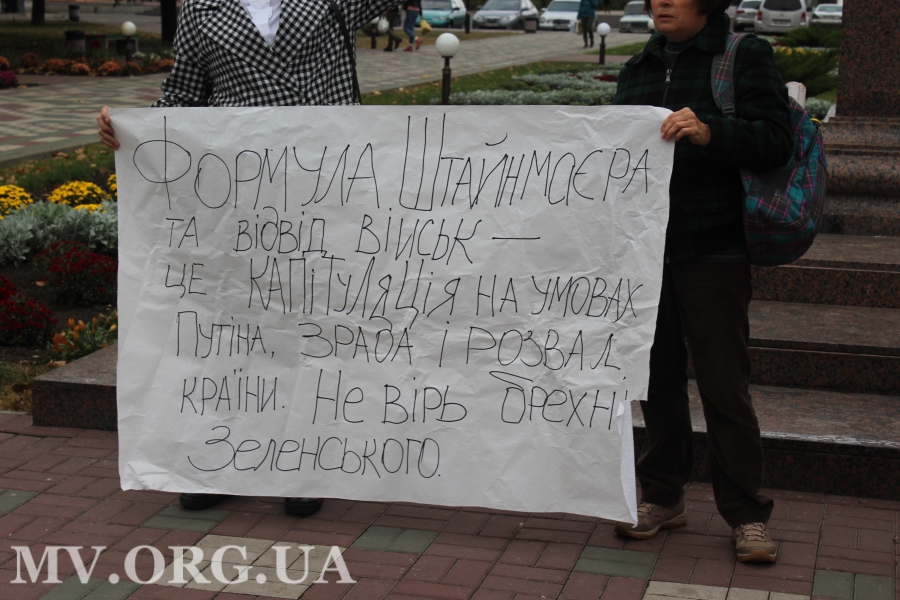 Формула Штайнмаєра
та відвід військ —
це капітуляція на умовах
Путіна, зрада і розвал
країни. Не вірь брехні
Зеленського.
MV.ORG.UA